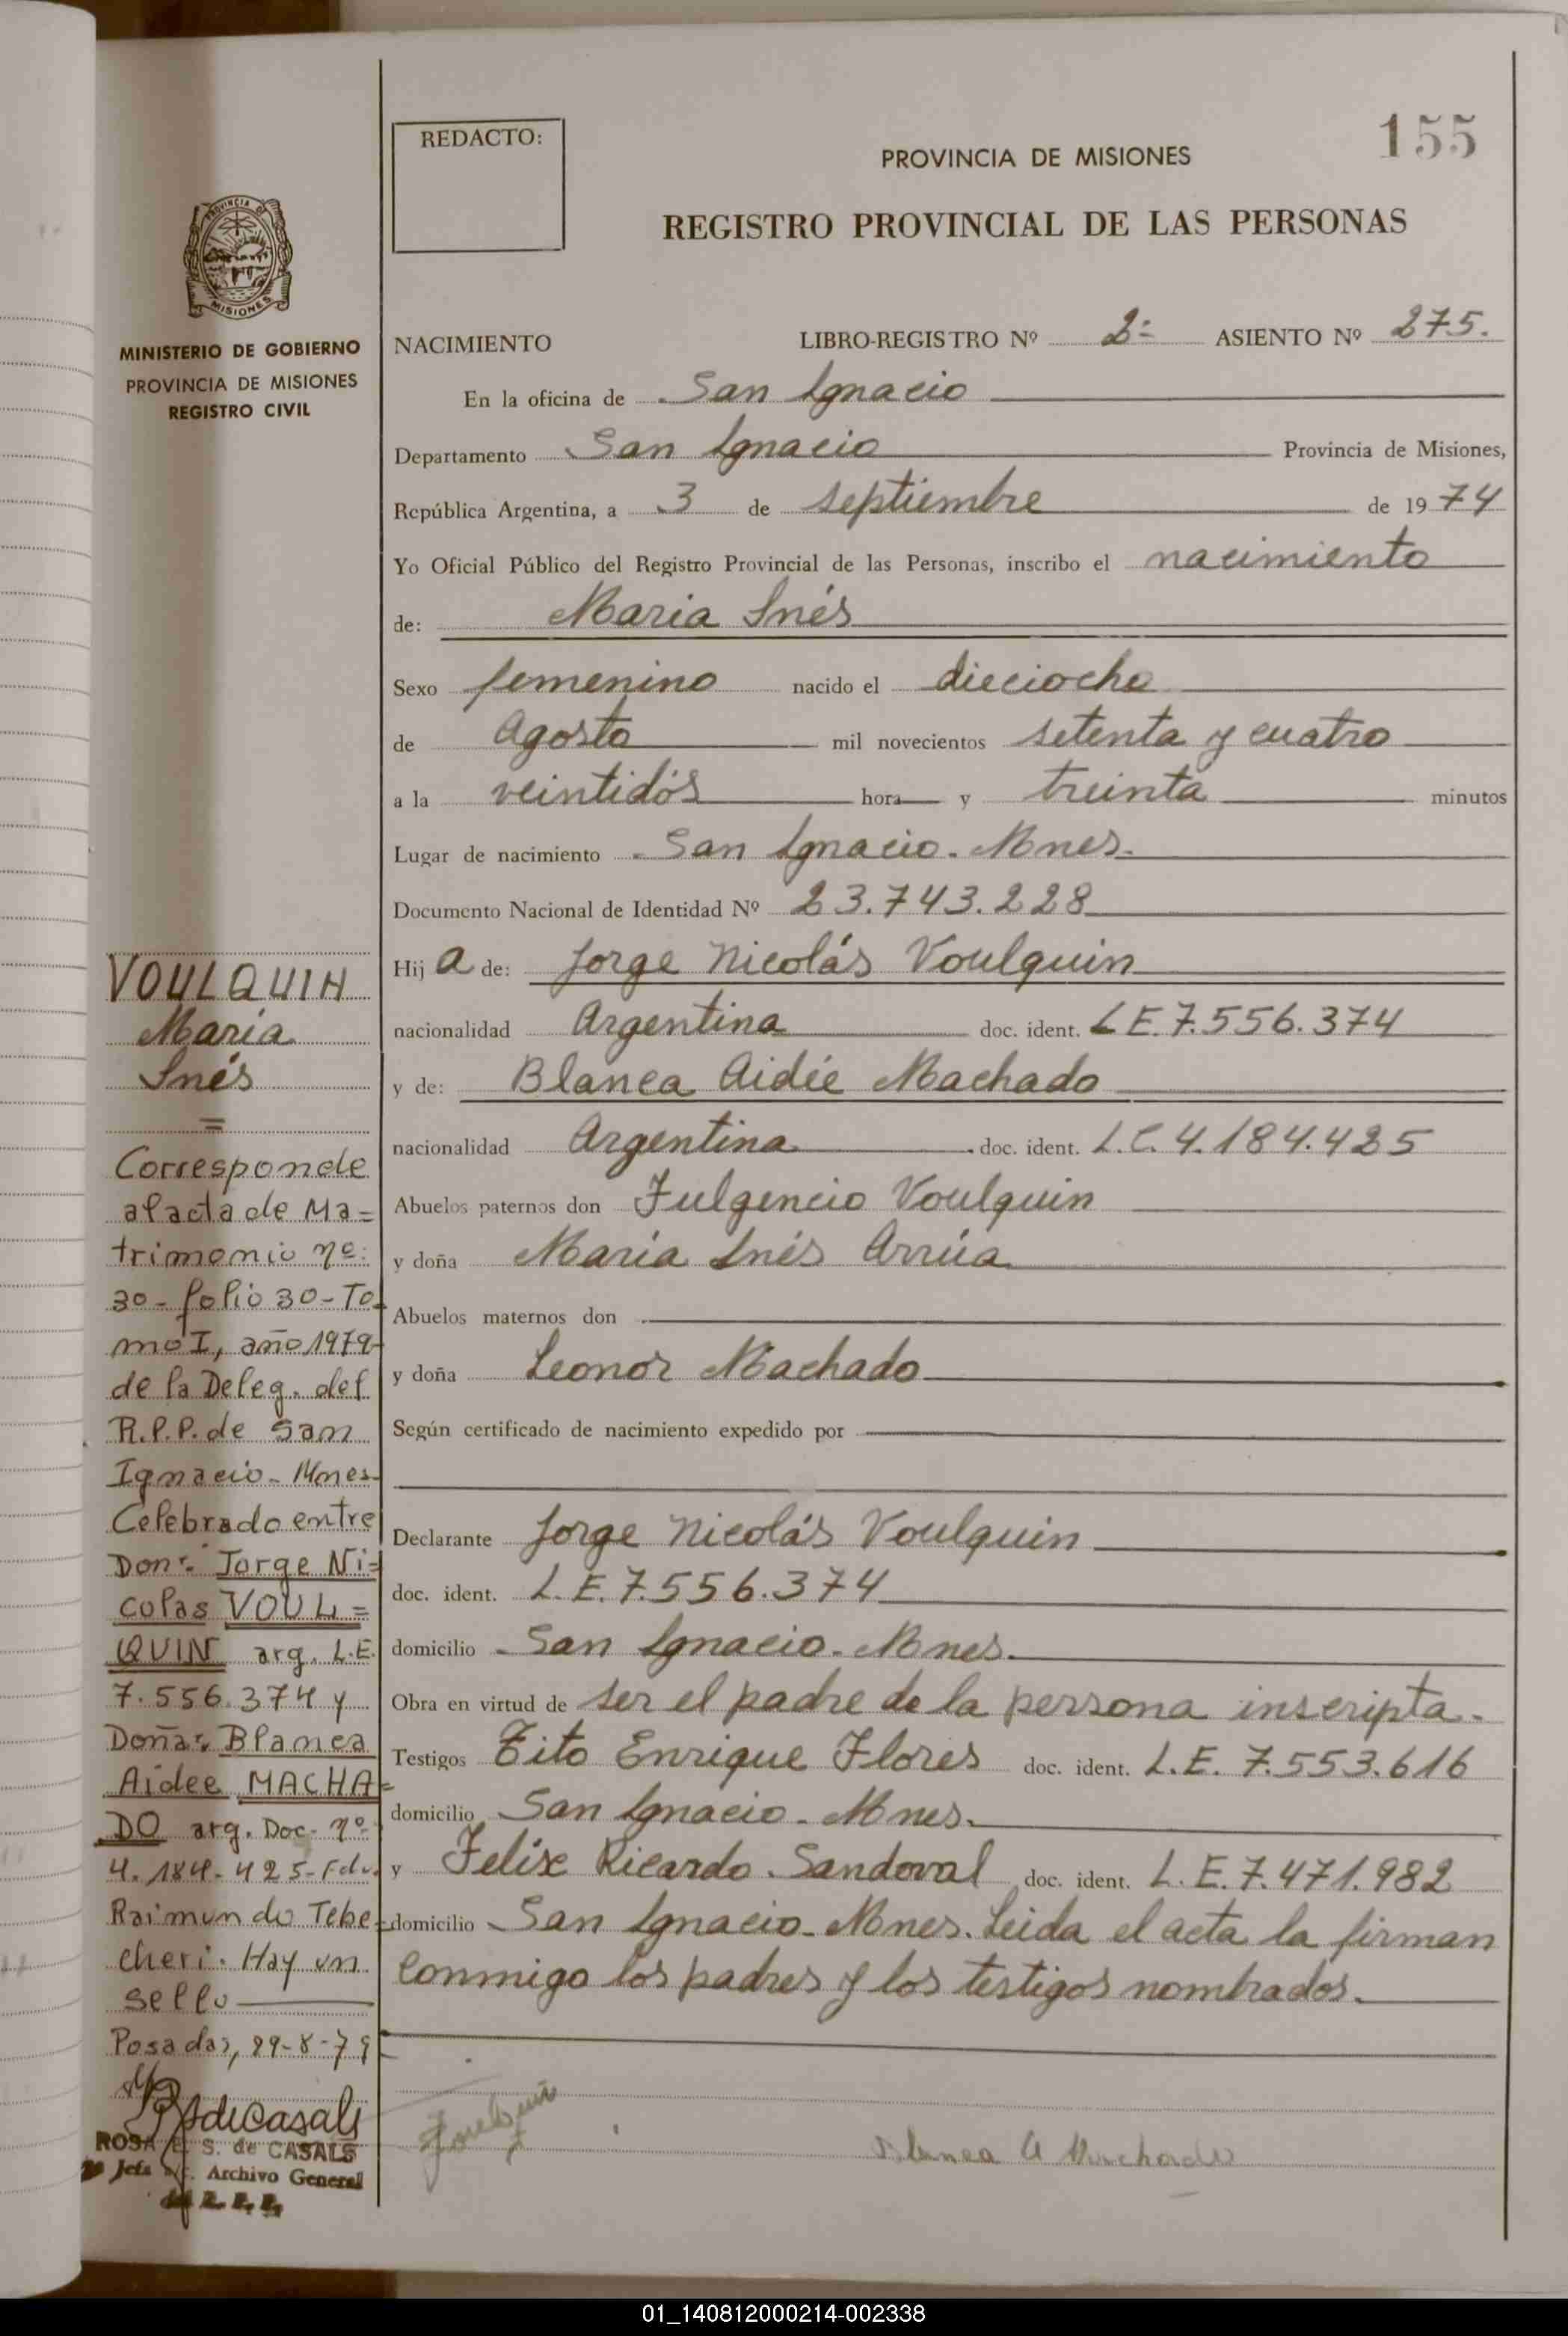 155
REDACTO:
PROVINCIA DE MISIONES
REGISTRO PROVINCIAL DE LAS PERSONAS
PROVINCIA DE
MISIONES
MINISTERIO DE GOBIERNO
PROVINCIA DE MISIONES
REGISTRO CIVIL
NACIMIENTO LIBRO-REGISTRO Nº 2º ASIENTO Nº 275.
En la oficina de San Ignacio
Departamento San Ignacio Provincia de Misiones,
República Argentina, a 3 de septiembre de 1974
Yo Oficial Público del Registro Provincial de las Personas, inscribo el nacimiento
de: Maria Inés
Sexo femenino nacido el dieciocho
de Agosto mil novecientos setenta y cuatro
a la veintidós hora y treinta minutos
Lugar de nacimiento San Ignacio. Mnes.
Documento Nacional de Identidad Nº 23.743.228
Hij a de: Jorge Nicolás Voulquin
nacionalidad Argentina doc. ident. LE.7.556.374
y de: Blanca Aidée Machado
nacionalidad Argentina doc. ident. L.C. 4.184.425
Abuelos paternos don Fulgencio Voulquin
y doña María Inés Arrúa
Abuelos maternos don
y doña Leonor Machado
Según certificado de nacimiento expedido por
Declarante Jorge Nicolás Voulquin
doc. ident. L.E.7.556.374
domicilio San Ignacio. Mnes.
Obra en virtud de ser el padre de la persona inscripta.
Testigos Tito Enrique Flores doc. ident. L.E. 7.553.616
domicilio San Ignacio. Mnes.
y Felix Ricardo Sandoval doc. ident. L.E.7.471.982
domicilio San Ignacio. Mnes. Leida el acta la firman
conmigo los padres y los testigos nombrados.
Voulquin
Blanca A Machado
VOULQUIN
María
Inés
=
Corresponde
al acta de Ma=
trimonio nº:
30- folio 30- To-
mo I, año 1979-
de la Deleg. del
R.P.P. de San
Ignacio- Mnes-
Celebrado entre
Don: Jorge Ni=
colas VOUL=
QUIN arg. L.E.
7.556.374 y
Doña: Blanca
Aidee MACHA=
DO arg. Doc. nº
4.184.425- Fdo.
Raimundo Tebe=
cheri. Hay un
sello
Posadas, 29-8-79
ROSA E. S. de CASALS
Jefa Archivo General
01_140812000214-002338